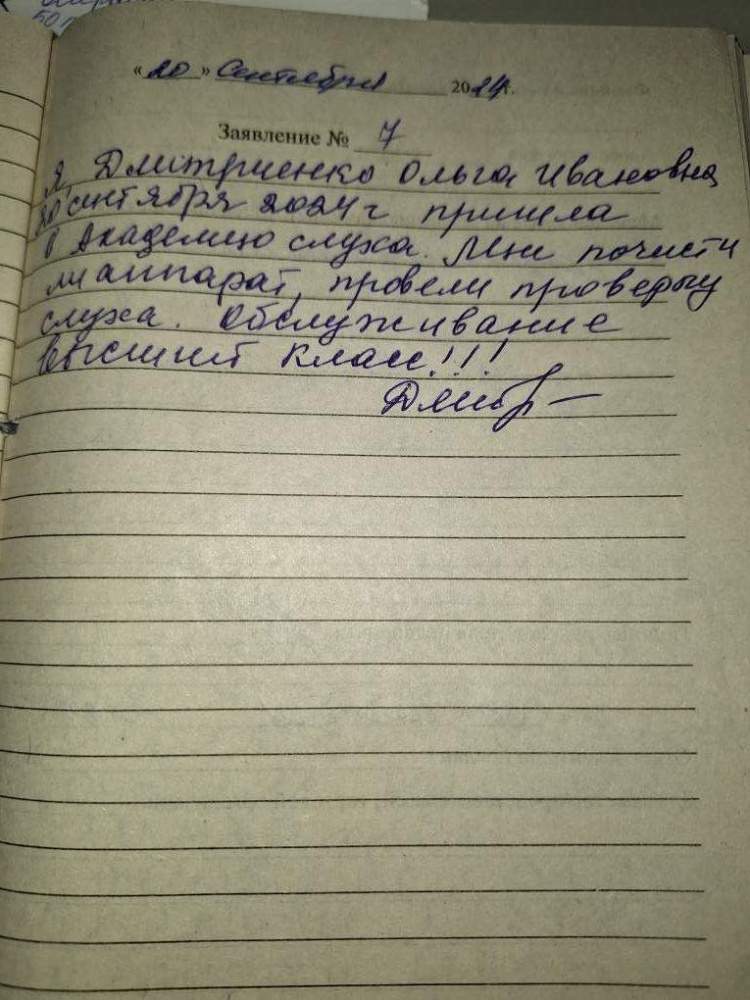 «20» Сентября 2024г.
Заявление № 7
Я, Дмитриенко Ольга Ивановна
20 сентября 2024 г пришла
в Академию слуха. Мне почисти
ли аппарат, провели проверку
слуха. Обслуживание
высший класс!!!